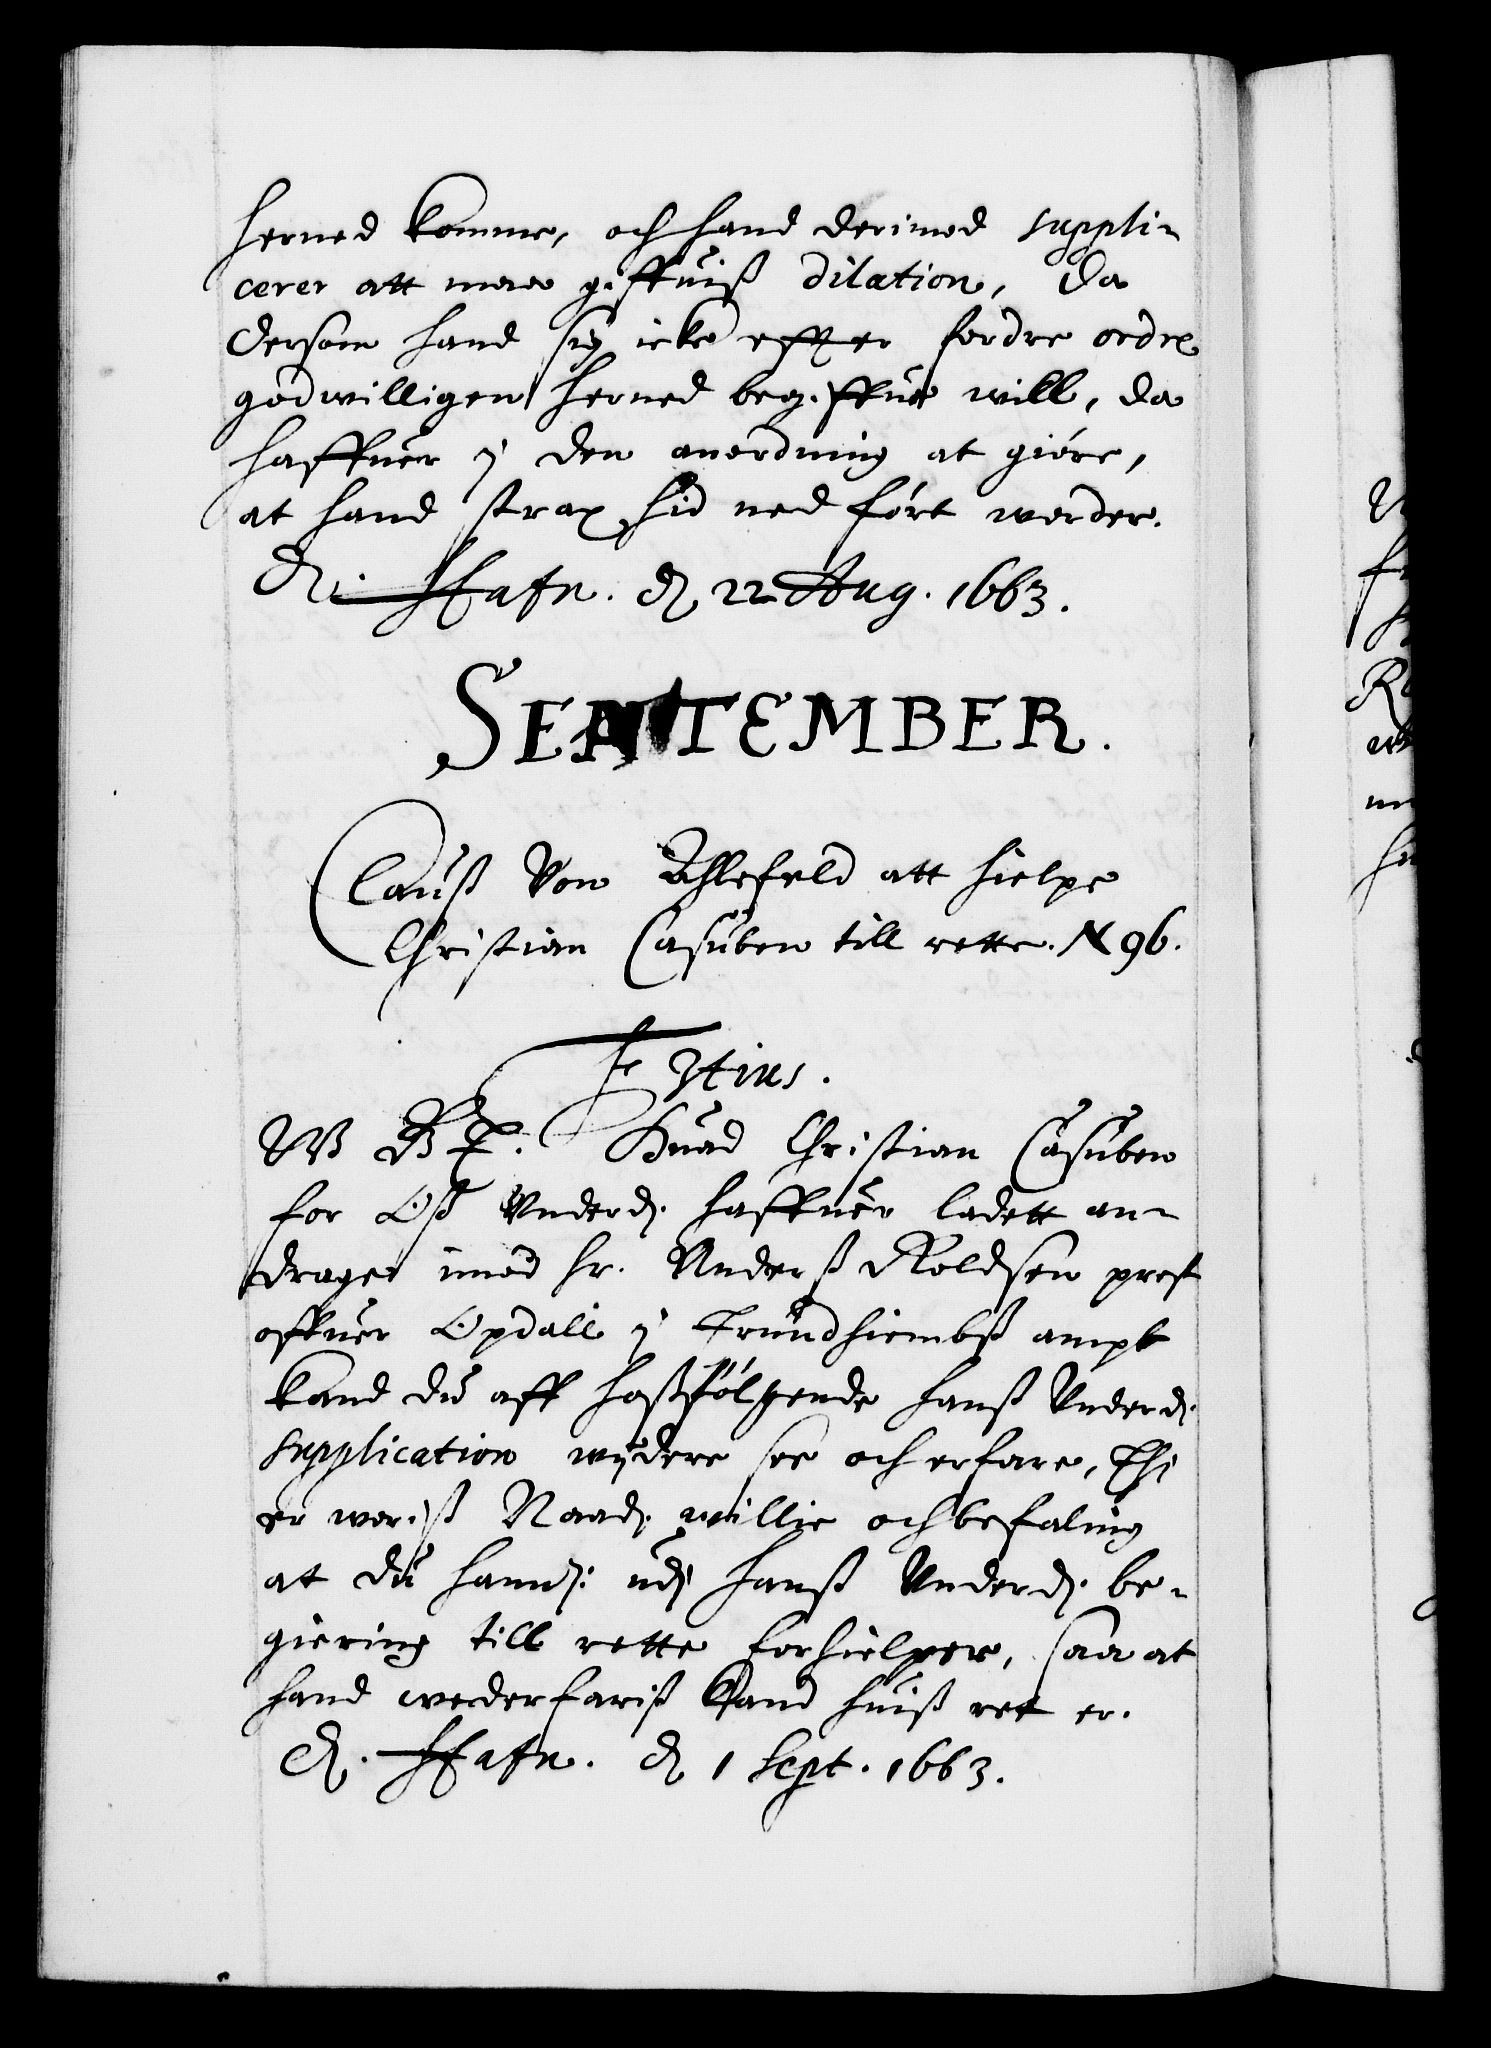 herned komme, och hand derimod suppli-
cerer att maa giffuis dilation, Da
dersom hand sig icke effter forrige ordre
godwilligen herned begiffue will, da
haffuer i den anordning at giöre,
at hand strax hid ned fört worder.
Hafn. d 22 Aug. 1663.
SEPTEMBER.
Clauß Von Ahlefeld att hielpe
Christian Casuben till rette. N 96.
F 3tius.
W G T. Huad Christian Casuben
for Oß Underd. haffuer ladett an-
drage imod hr. Anderß Roldsen prest
offuer Opdall i Trundhiembß ampt
kand du aff hoßfölgende hanß Underd.
supplication wydere see och erfare, Thi
er woriß Naad. willie och befaling
at du hannem udj hanß Underd. be-
giering till rette forhielper, saa at
hand wederfariß kand huiß ret er.
Hafn. d 1 Sept. 1663.